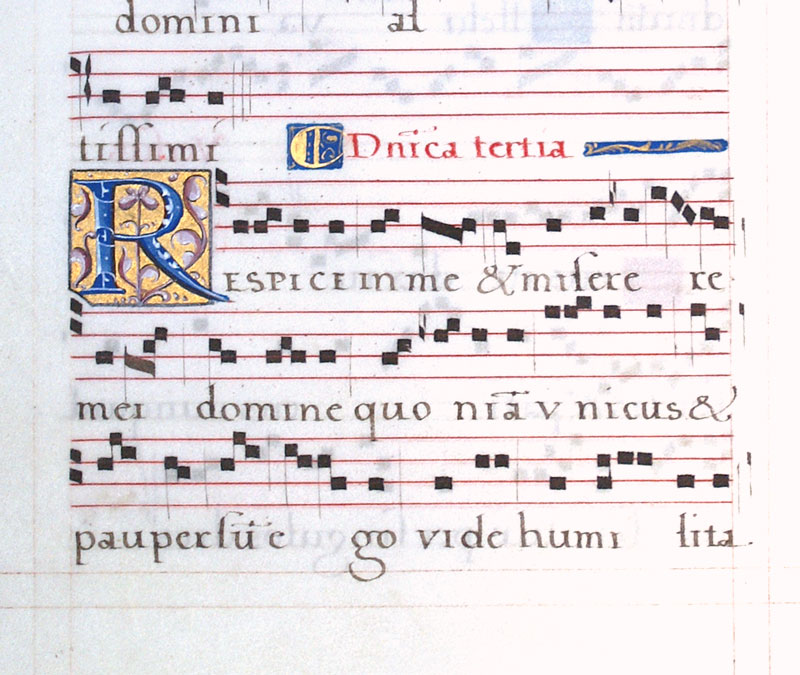 domini al
tissimi Dnica tertia
RESPICE in me & misere re
mei domine quo niā vnicus &
pauper sū e go vide humi lita